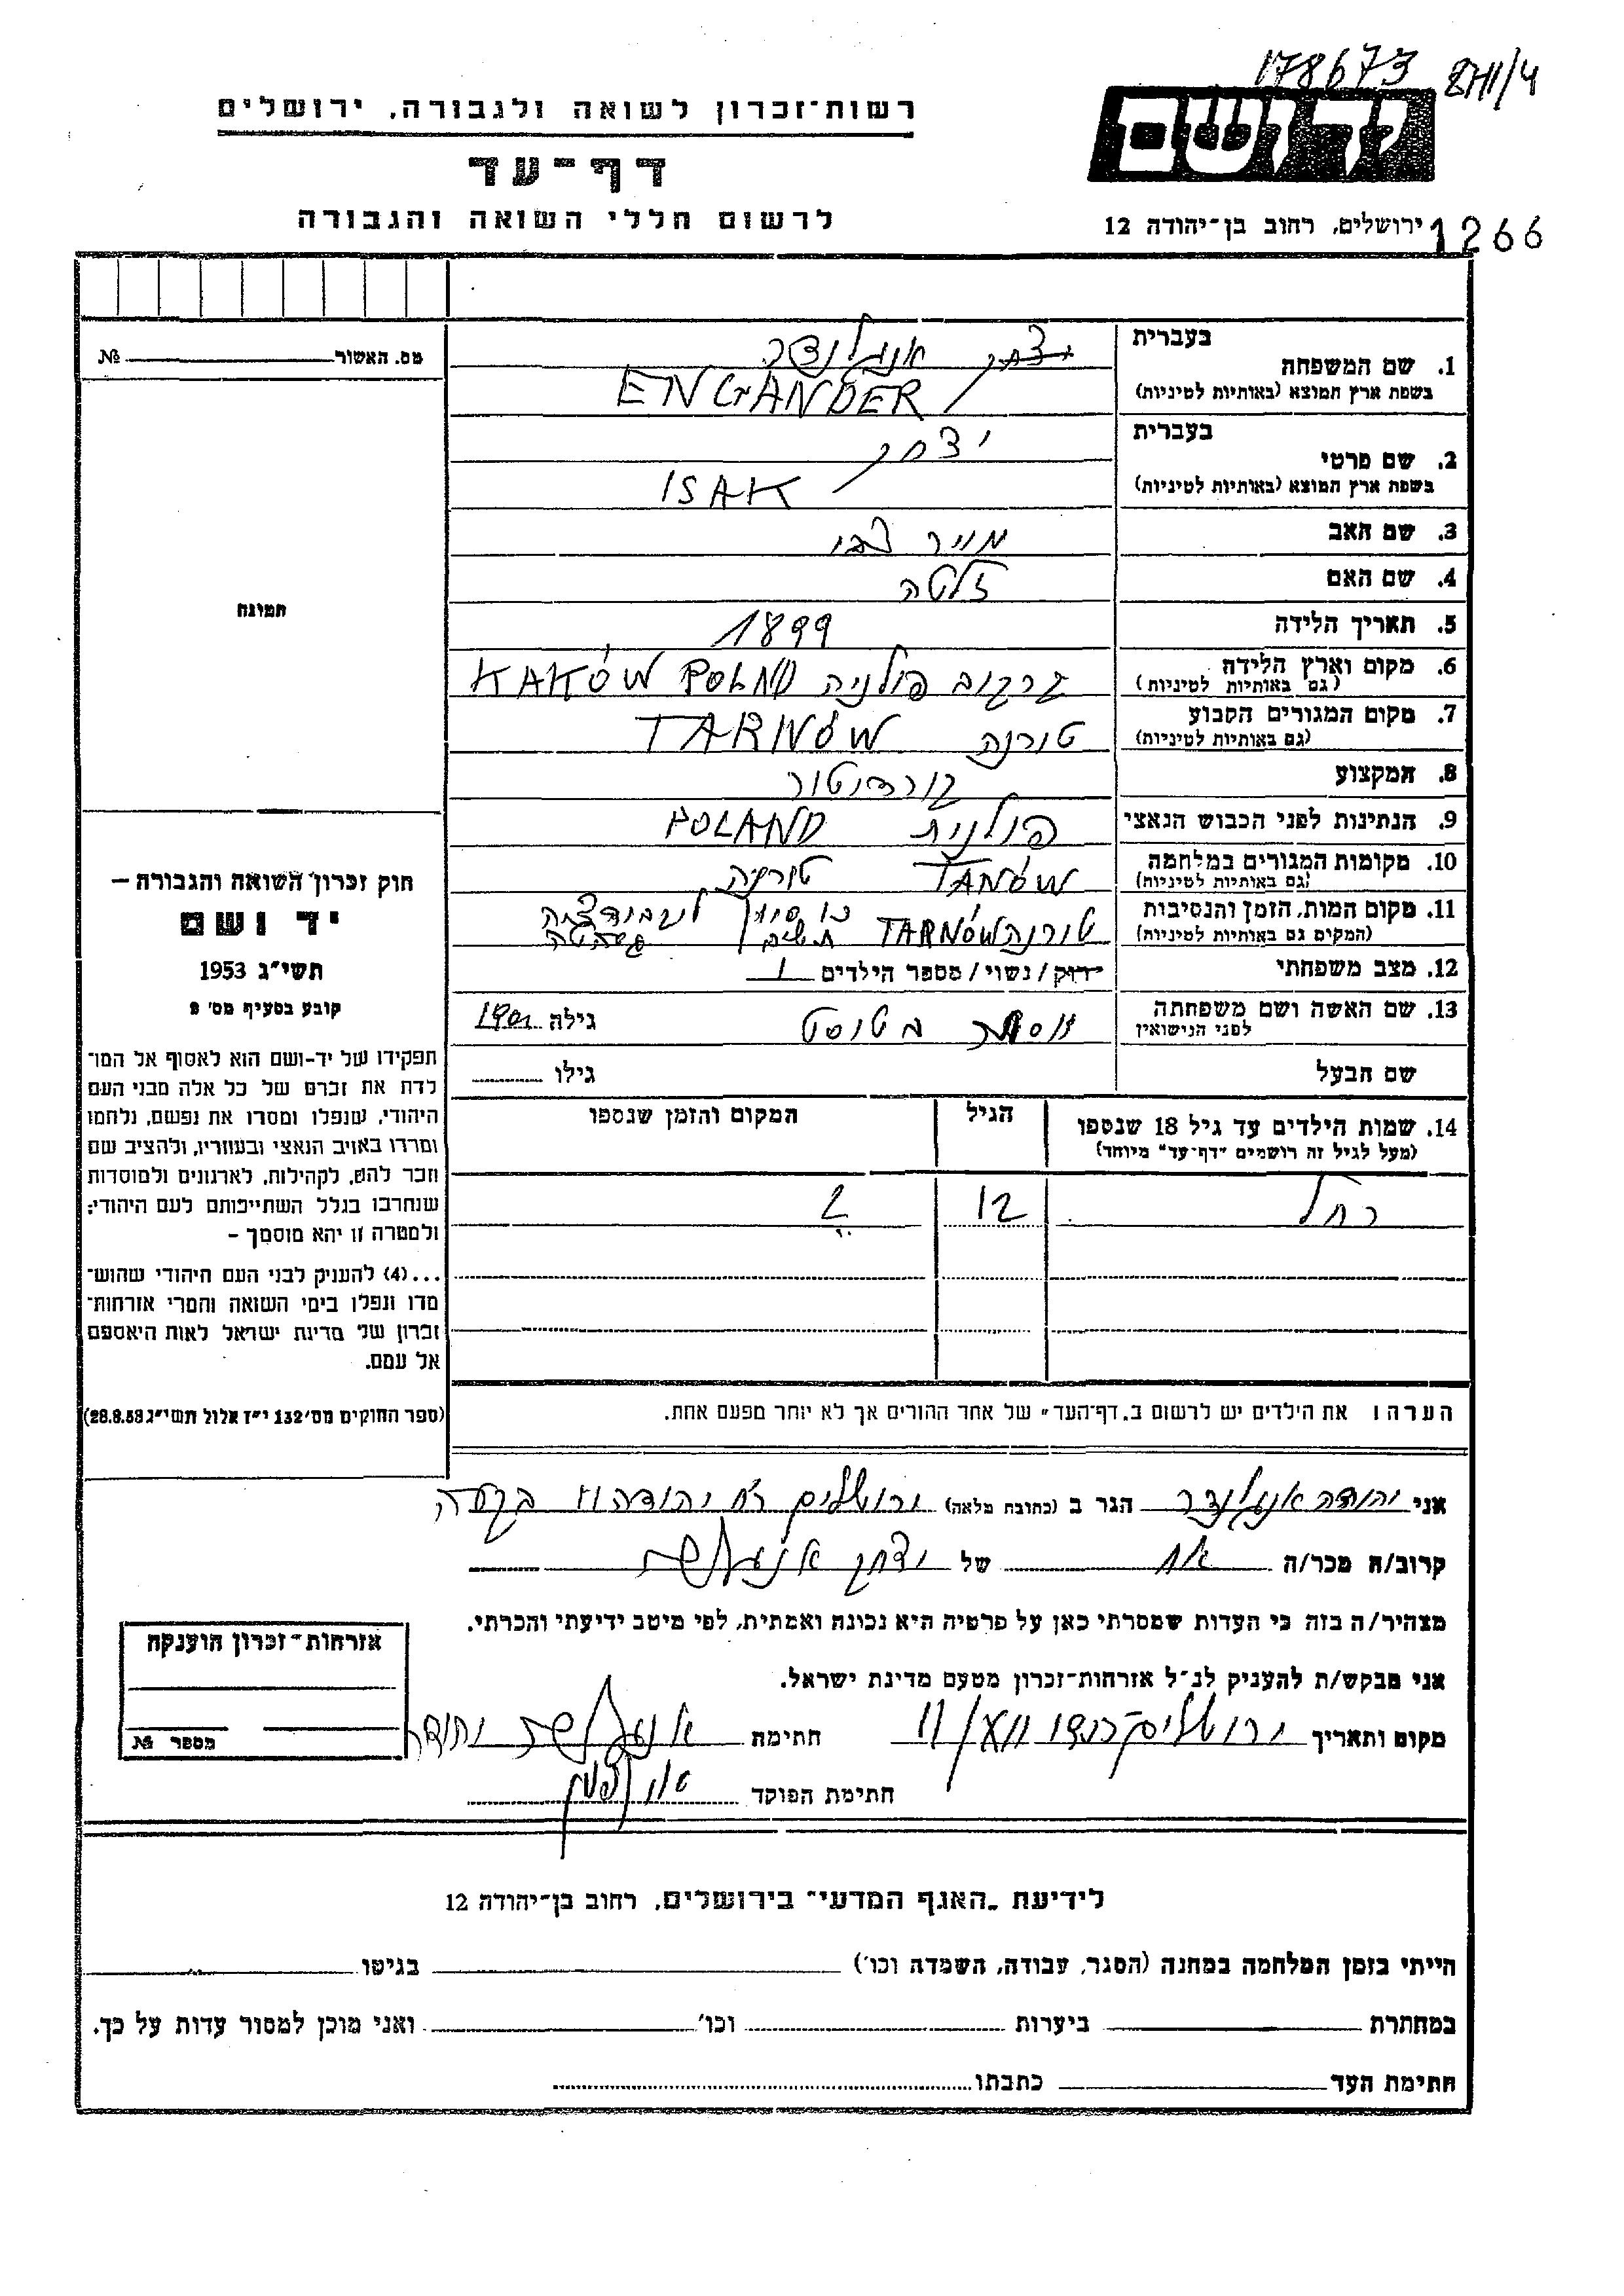 178673
רשות־זכרון לשואה ולגבורה, ירושלים
יד ושם
דף־עד
לרשום חללי השואה והגבורה
ירושלים, רחוב בן־יהודה 12
1266
בעברית
יצחק אנגלנדר
1. שם המשפחה
בשפת ארץ המוצא (באותיות לטיניות)
ENGANDER
בעברית
יצחק
2. שם פרטי
בשפת ארץ המוצא (באותיות לטיניות)
ISAK
3. שם האב
צבי
4. שם האם
זלטה
5. תאריך הלידה
1899
6. מקום וארץ הלידה
(גם באותיות לטיניות)
פולניה KAKÓW POLND
7. מקום המגורים הקבוע
(גם באותיות לטיניות)
טורנה TARNÓW
8. המקצוע
9. הנתינות לפני הכבוש הנאצי
פולנית POLAND
10. מקומות המגורים במלחמה
(גם באותיות לטיניות)
TANÓW טורנה
11. מקום המות, הזמן והנסיבות
(המקום גם באותיות לטיניות)
טורנה TARNÓW
12. מצב משפחתי
רווק/נשוי/מספר הילדים 1
13. שם האשה ושם משפחתה
לפני הנישואין
גילה 1901
שם הבעל
גילו
14. שמות הילדים עד גיל 18 שנספו
(מעל לגיל זה רושמים "דף־עד" מיוחד)
הגיל
המקום והזמן שנספו
רחל
12
הערה: את הילדים יש לרשום ב„דף־העד" של אחד ההורים אך לא יותר מפעם אחת.
מס. האשור №
תמונה
חוק זכרון השואה והגבורה —
יד ושם
תשי"ג 1953
קובע בסעיף מס' 2
תפקידו של יד-ושם הוא לאסוף אל המו־
לדת את זכרם של כל אלה מבני העם
היהודי, שנפלו ומסרו את נפשם, נלחמו
ומרדו באויב הנאצי ובעוזריו, ולהציב שם
וזכר להם, לקהילות, לארגונים ולמוסדות
שנחרבו בגלל השתייכותם לעם היהודי;
ולמטרה זו יהא מוסמך —
...(4) להעניק לבני העם היהודי שהוש־
מדו ונפלו בימי השואה והמרי אזרחות־
זכרון של מדינת ישראל לאות היאספם
אל עמם.
(ספר החוקים מס' 132 י"ז אלול תשי"ג 28.8.53)
אני יהודה אנגלנדר הגר ב (כתובת מלאה) ירושלים
קרוב/ה מכר/ה אח של יצחק אנגלנדר
מצהיר/ה בזה כי העדות שמסרתי כאן על פרטיה היא נכונה ואמתית, לפי מיטב ידיעתי והכרתי.
אני מבקש/ת להעניק לנ"ל אזרחות־זכרון מטעם מדינת ישראל.
מקום ותאריך ירושלים
חתימה אנגלנדר יהודה
חתימת הפוקד
אזרחות־זכרון הוענקה
מספר №
לידיעת „האגף המדעי" בירושלים, רחוב בן־יהודה 12
הייתי בזמן המלחמה במחנה (הסגר, עבודה, השמדה וכו') בגיטו
במחתרת ביערות וכו' ואני מוכן למסור עדות על כך.
חתימת העד כתבתו